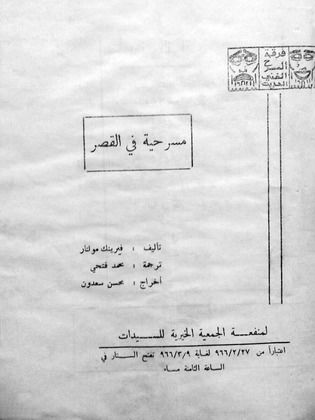 فرقة
المسرح
الفني
الحديث
مسرحية في القصر
تأليف : فيرينك مولنار
ترجمة : محمد فتحي
اخراج : محسن سعدون
لمنفعة الجمعية الخيرية للسيدات
اعتباراً من ٩٦٦/٢/٢٧ لغاية ٩٦٦/٣/٩ تفتح الستار في
الساعة الثامنة مساء